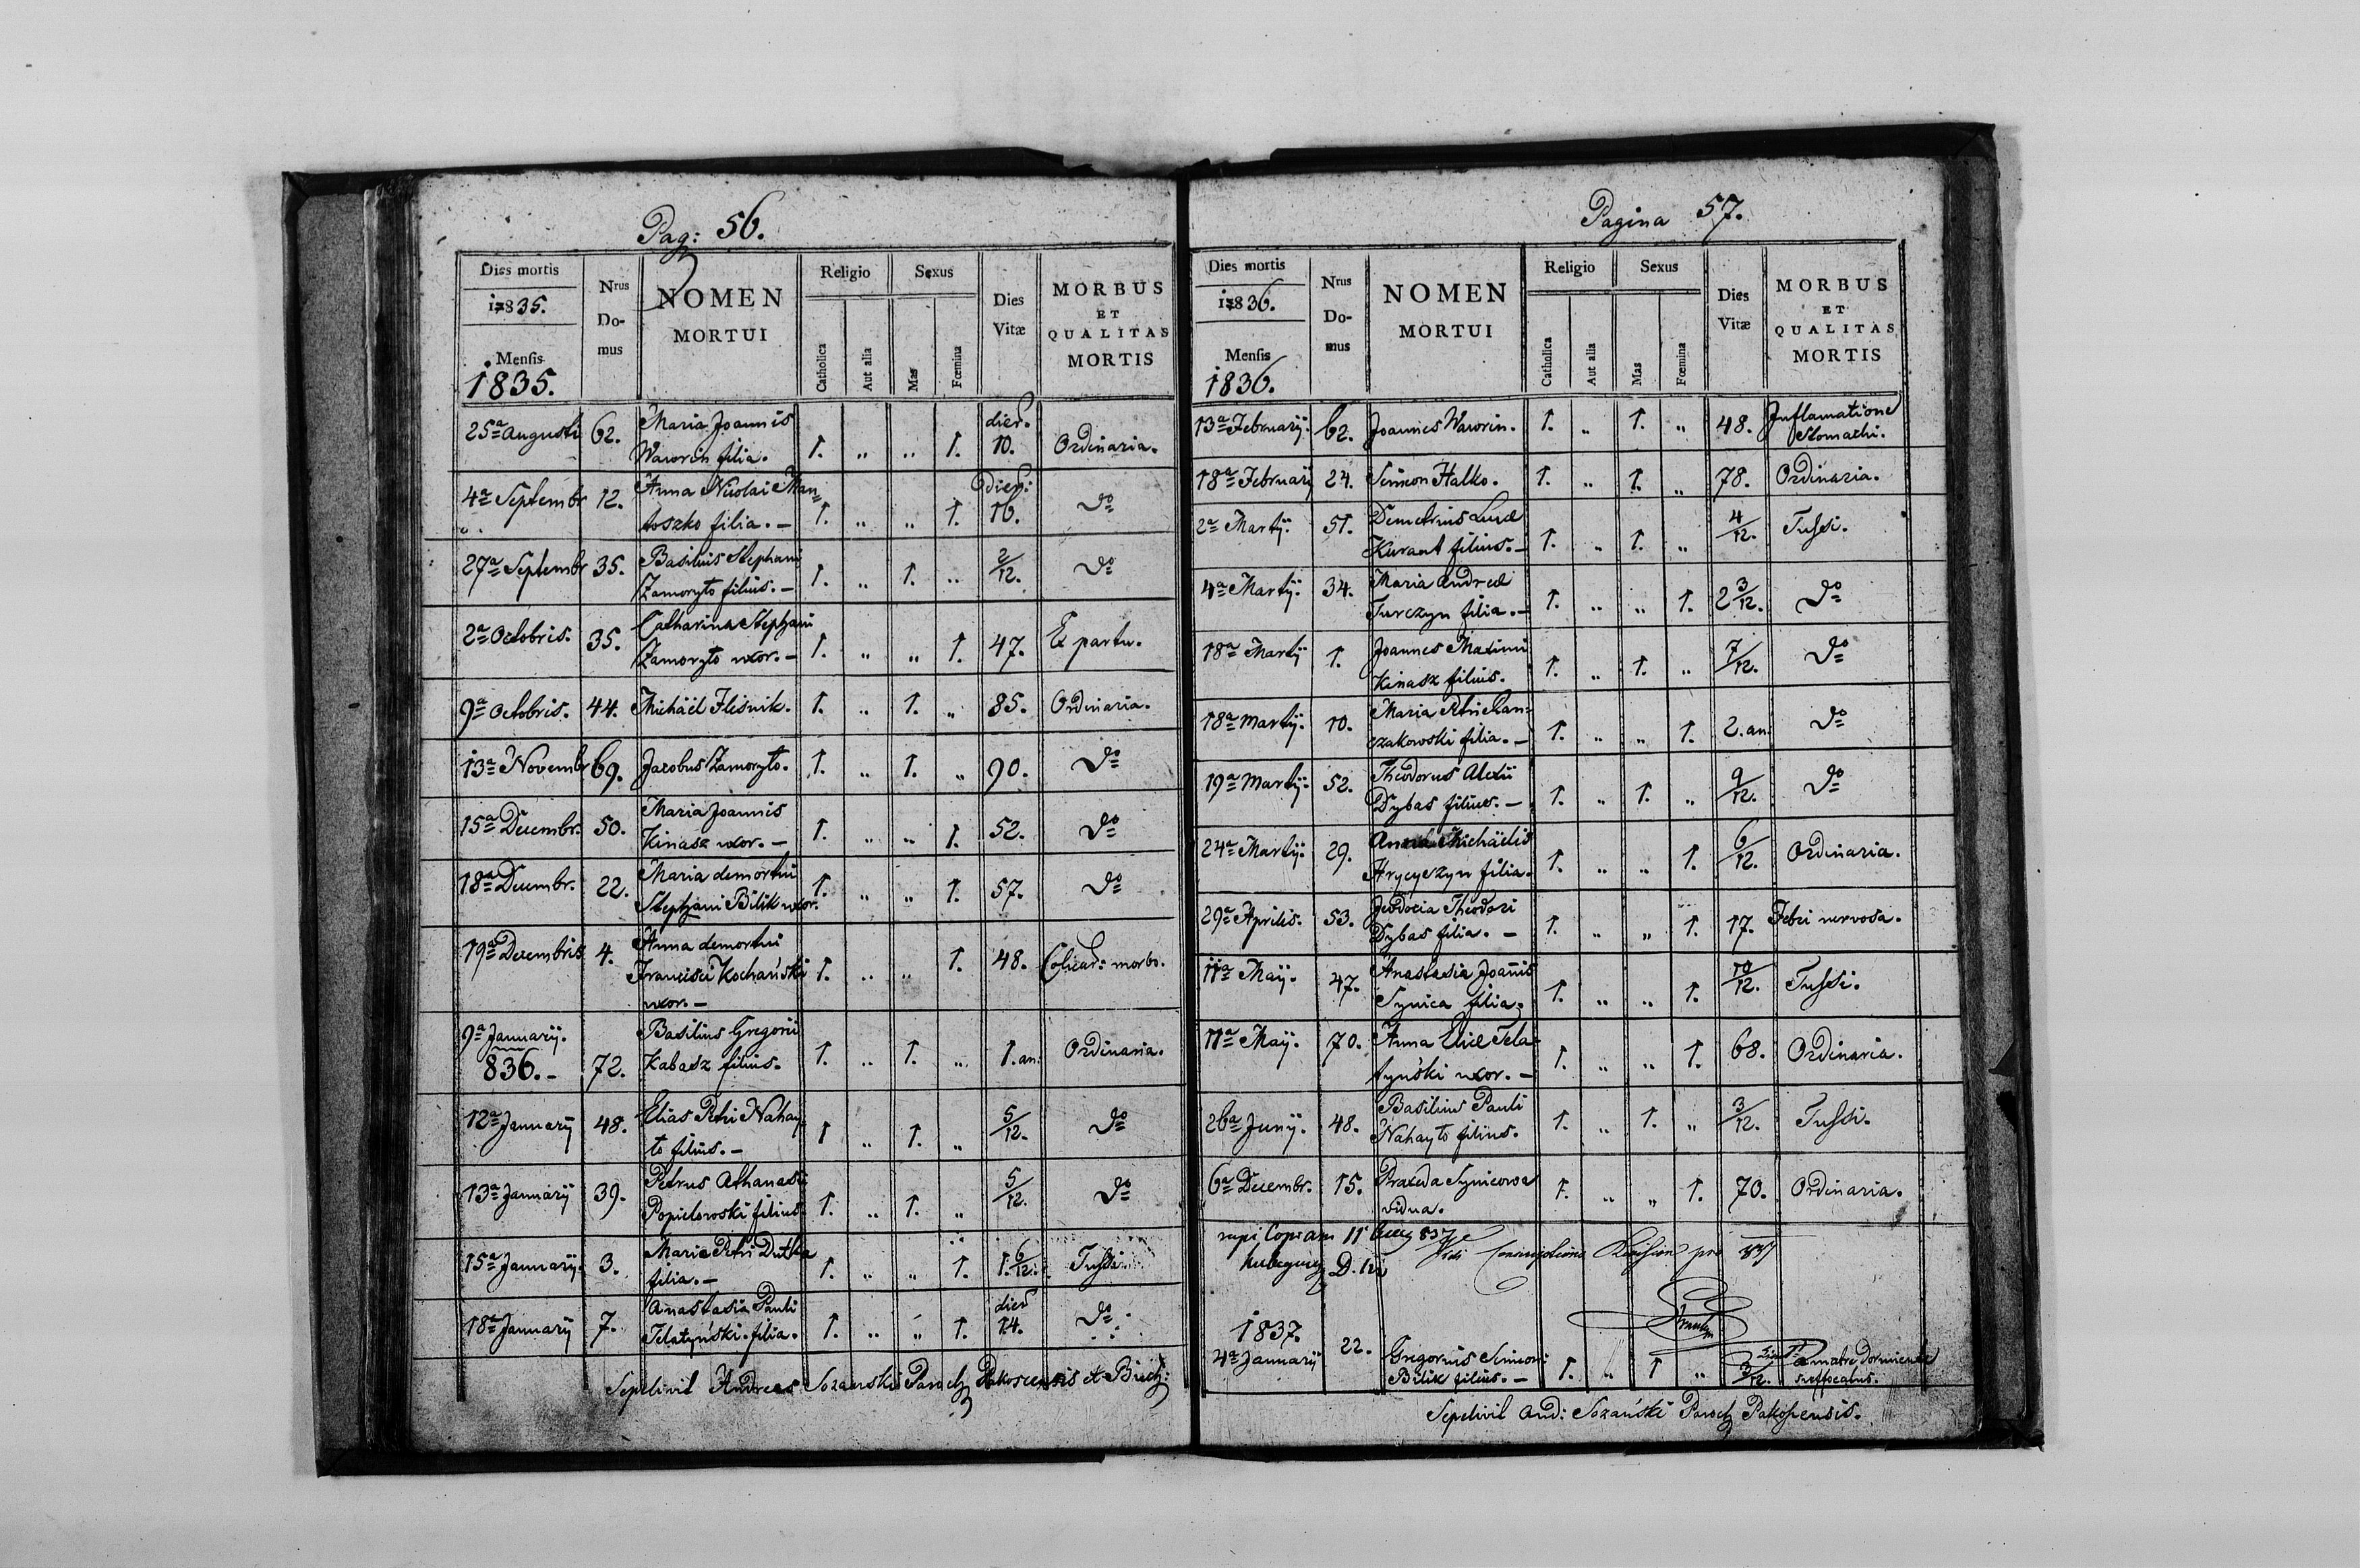 Pag: 56.
Dies mortis
1835.
Mensis
1835.
Nrus Domus
NOMEN MORTUI
Religio
Catholica
Aut alia
Sexus
Mas
Fœmina
Dies Vitæ
MORBUS ET QUALITAS MORTIS
25a Augusti 62. Maria Joannis 1. „ „ 1. dier. 10. Ordinaria.
Wawrin filia.
4a Septembr 12. Anna Nicolai Man= 1. „ „ 1. dier: 16. do
toszko filia. –
27a Septembr 35. Basilius Stephani 1. „ 1. „ 2/12. do
Zamoryto filius. –
2a Octobris. 35. Catharina Stephani 1. „ „ 1. 47. E partu.
Zamoryto uxor. –
9a Octobris. 44. Michäel Ilisnik. 1. „ 1. „ 85. Ordinaria.
13a Novembr 69. Jacobus Zamoryto. 1. „ 1. „ 90. do
15a Decembr. 50. Maria Joannis 1. „ „ 1. 52. do
Kinasz uxor. –
18a Decembr. 22. Maria demortui 1. „ „ 1. 57. do
Stephani Bilik uxor.
19a Decembris 4. Anna demortui 1. „ „ 1. 48. morbo.
Francisci Kochański
uxor. –
9a Januarÿ. 836. – 72. Basilius Gregorii 1. „ 1. „ 1. an: Ordinaria.
Kabasz filius.
12a Januarÿ 48. Elias Petri Nahay 1 „ 1. „ 5/12. do
to filius. –
13a Januarÿ 39. Petrus Athanasii 1. „ 1. „ 5/12. do
Popielowski filius.
15a Januarÿ. 3. Maria Petri Dutka 1. „ „ 1. 1. 6/12. Tussi
filia. –
18a Januarÿ 7. Anastasia Pauli 1. „ „ 1. dier 14. do
Telatyński filia.
Sepelivit Andreas Sozanski Paroch
Pagina 57.
Dies mortis
1836.
Mensis
1836.
Nrus Domus
NOMEN MORTUI
Religio
Catholica
Aut alia
Sexus
Mas
Fœmina
Dies Vitæ
MORBUS ET QUALITAS MORTIS
13a Februarÿ. 62. Joannes Wawrin. 1. „ 1. „ 48. Inflamatione
Stomachi.
18a Februarÿ 24. Simeon Halko. 1. „ 1. „ 78. Ordinaria.
2a Martÿ. 51. Demetrius Lucæ 1. „ 1. „ 4/12. Tussi.
Kurant filius. –
4a Martÿ. 34. Maria Andreæ 1. „ „ 1. 2 3/12. do
Turczyn filia. –
18a Martÿ 1. Joannes Maximi 1. „ 1. „ 7/12. do
Kinasz filius.
18a Martÿ. 10. Maria Petri 1. „ „ 1. 2. an. do
czakowski filia. –
19a Martÿ. 52. Theodorus Alexii 1. „ 1. „ 9/12. do
Dybas filius. –
24a Martÿ. 29. Anna Michäelis 1. „ „ 1. 6/12. Ordinaria.
Hrycyczyn filia.
29a Aprilis. 53. Theodori 1. „ „ 1. 17. Febri nervosa.
Dybas filia. –
11a Maÿ. 47. Anastasia Joannis 1. „ „ 1. 10/12. Tussi.
Synica filia.
11a Maÿ. 70. Anna Eliæ Tela 1. „ „ 1. 68. Ordinaria.
tyński uxor. –
26a Junÿ. 48. Basilius Pauli 1. „ 1. „ 3/12. Tussi.
Nahayto filius.
6a Decembr. 15. Praxeda Synicowa 1. „ „ 1. 70. Ordinaria.
vidua.
Copiam 11 837
Vidi pro 837
1837.
4a Januarÿ 22. Gregorius Simeoni 1. „ 1 „ 3/12. a matre dormiente
Bilik filius. – suffocatus.
Sepelivit And: Sozański Paroch